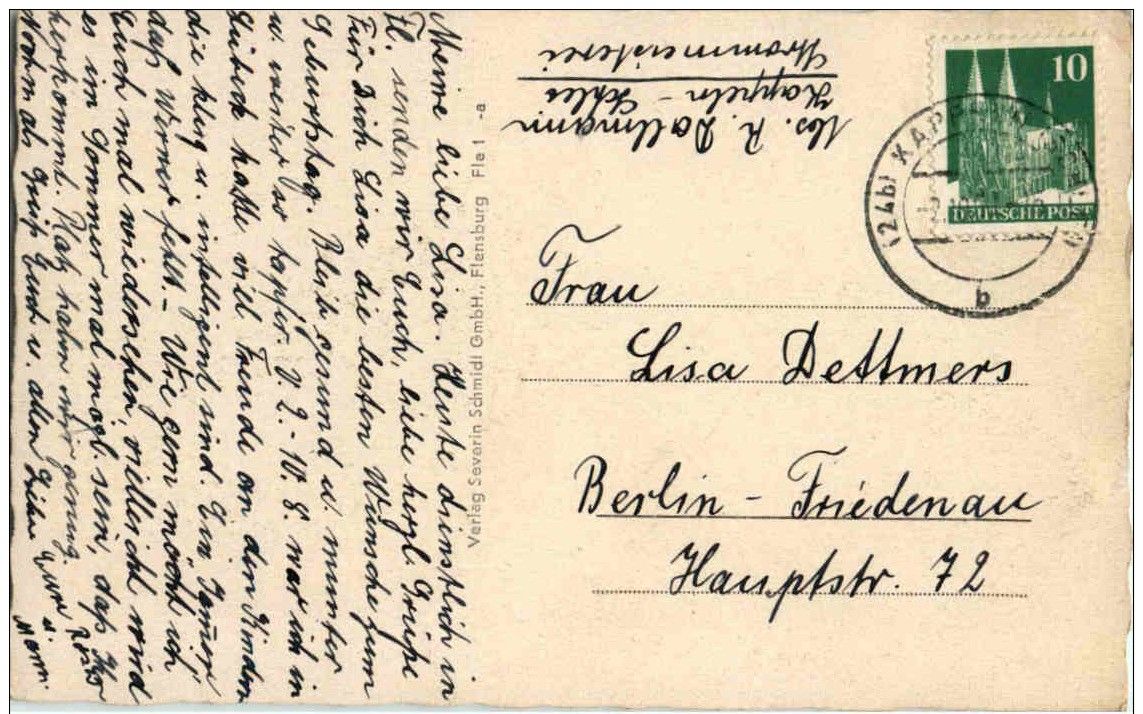 Meine liebe Lisa. Heute dienstlich in
Fl. senden wir Euch, liebe herzl. Grüße
Für Dich Lisa die besten Wünsche zum
Geburtstag. Bleib gesund u. munter
u. weiter so tapfer. V. 2.-W. 8. war ich in
Lübeck hatte viel Freude an den Kindern
die klug u. intelligent sind. Ein Jammer
daß Werner fehlt. - Wie gern möcht ich
Euch mal wiedersehen, vielleicht wird
es im Sommer mal mögl. sein, daß Ihr
herkommt. Platz haben wir genug.
Nochmals Gruß Euch u. allen Lieben Eure
u.
Verlag Severin Schmidt GmbH., Flensburg Fle1 -a
Abs. R. Dallmann
Kappeln - Schles
Strommeisterei
10
DEUTSCHE POST
(24b) KAPPELN
b
Frau
Lisa Dettmers
Berlin - Friedenau
Hauptstr. 72